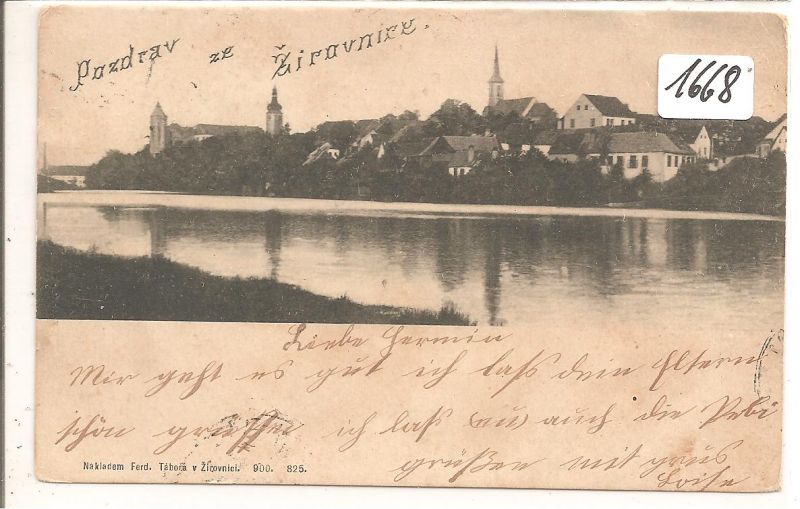 Pozdrav ze Žirovnice.
1668
Liebe Hermin
Mir geht es gut ich laß dein Eltern
schön grüssen ich laß auch die
grüßen mit grus
Nakladem Ferd. Tábora v Žirovnici. 900. 825.